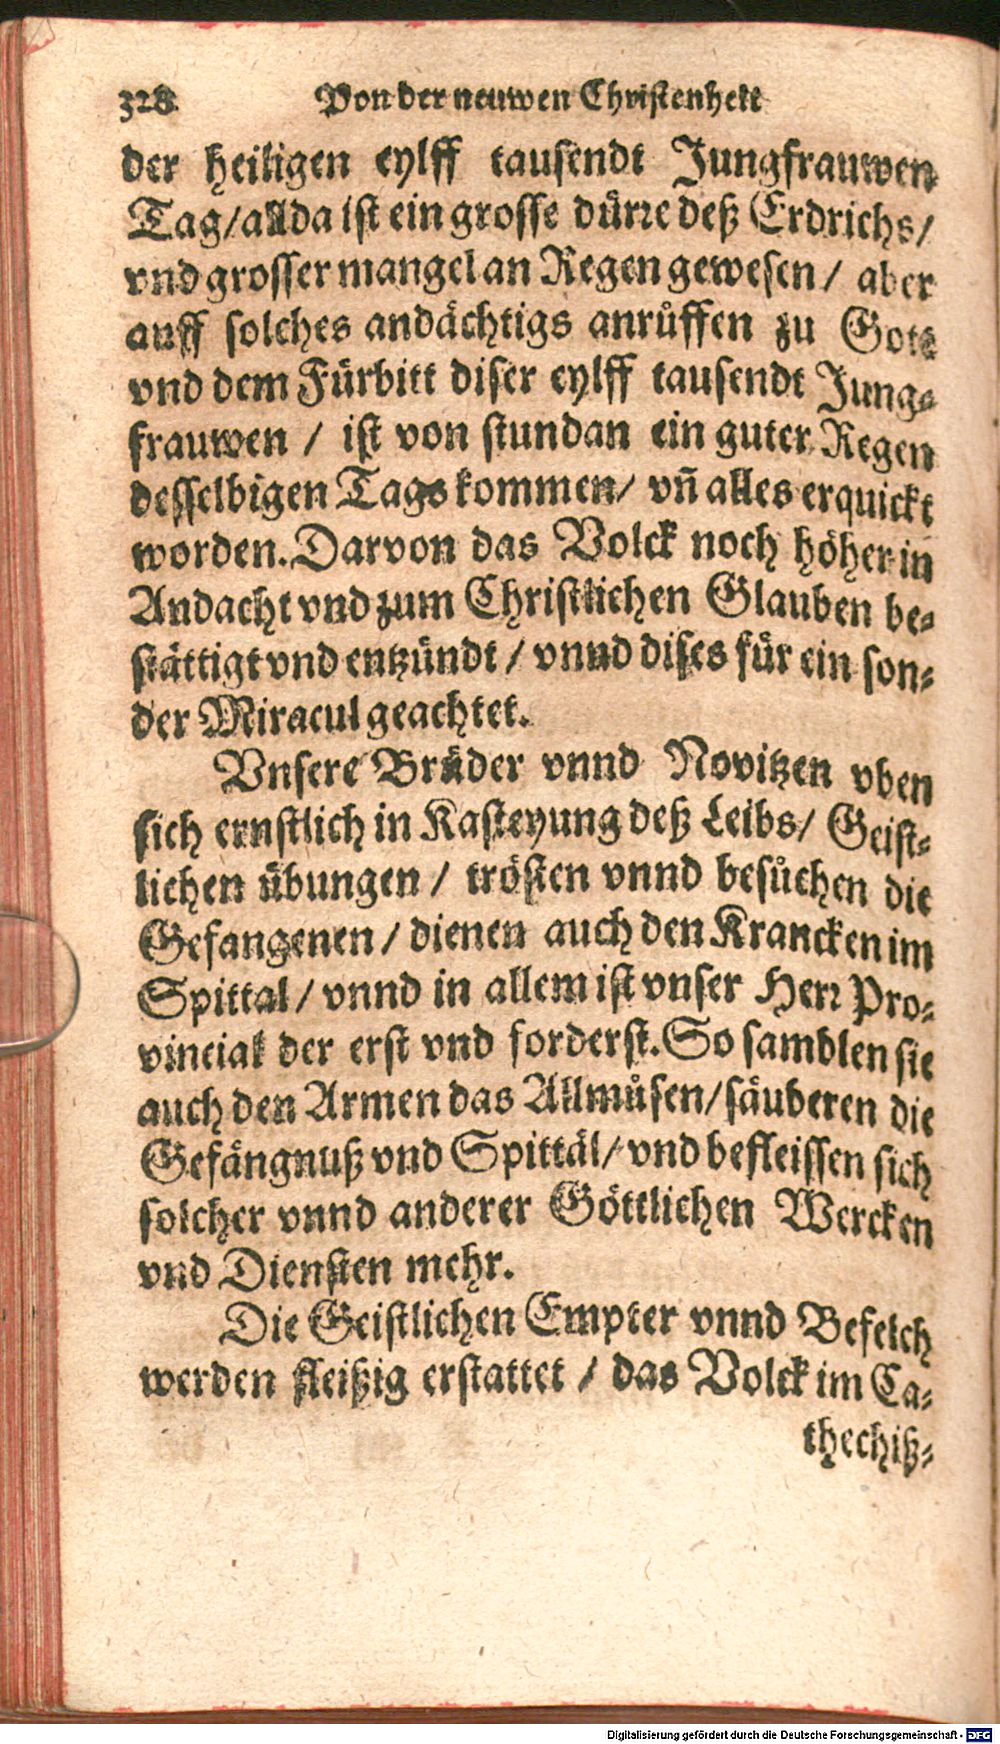 328 Von der neuwen Christenheit
der heiligen eylff tausendt Jungfrauwen
Tag/allda ist ein grosse dürre deß Erdrichs/
vnd grosser mangel an Regen gewesen/ aber
auff solches andächtigs anrůffen zu Gott
vnd dem Fürbitt diser eylff tausendt Jung-
frauwen / ist von stundan ein guter Regen
desselbigen Tags kommen/ vñ alles erquickt
worden. Darvon das Volck noch höher in
Andacht vnd zum Christlichen Glauben be-
stättigt vnd entzündt / vnnd dises für ein son-
der Miracul geachtet.
Vnsere Brüder vnnd Novitzen vben
sich ernstlich in Kasteyung deß Leibs/ Geist-
lichen übungen / trösten vnnd besůchen die
Gefangenen / dienen auch den Krancken im
Spittal / vnnd in allem ist vnser Herr Pro-
vincial der erst vnd forderst. So samblen sie
auch den Armen das Allmůsen/ säuberen die
Gefängnuß vnd Spittäl/ vnd befleissen sich
solcher vnnd anderer Göttlichen Wercken
vnd Diensten mehr.
Die Geistlichen Empter vnnd Befelch
werden fleißig erstattet / das Volck im Ca-
thechiß-
Digitalisierung gefördert durch die Deutsche Forschungsgemeinschaft - DFG